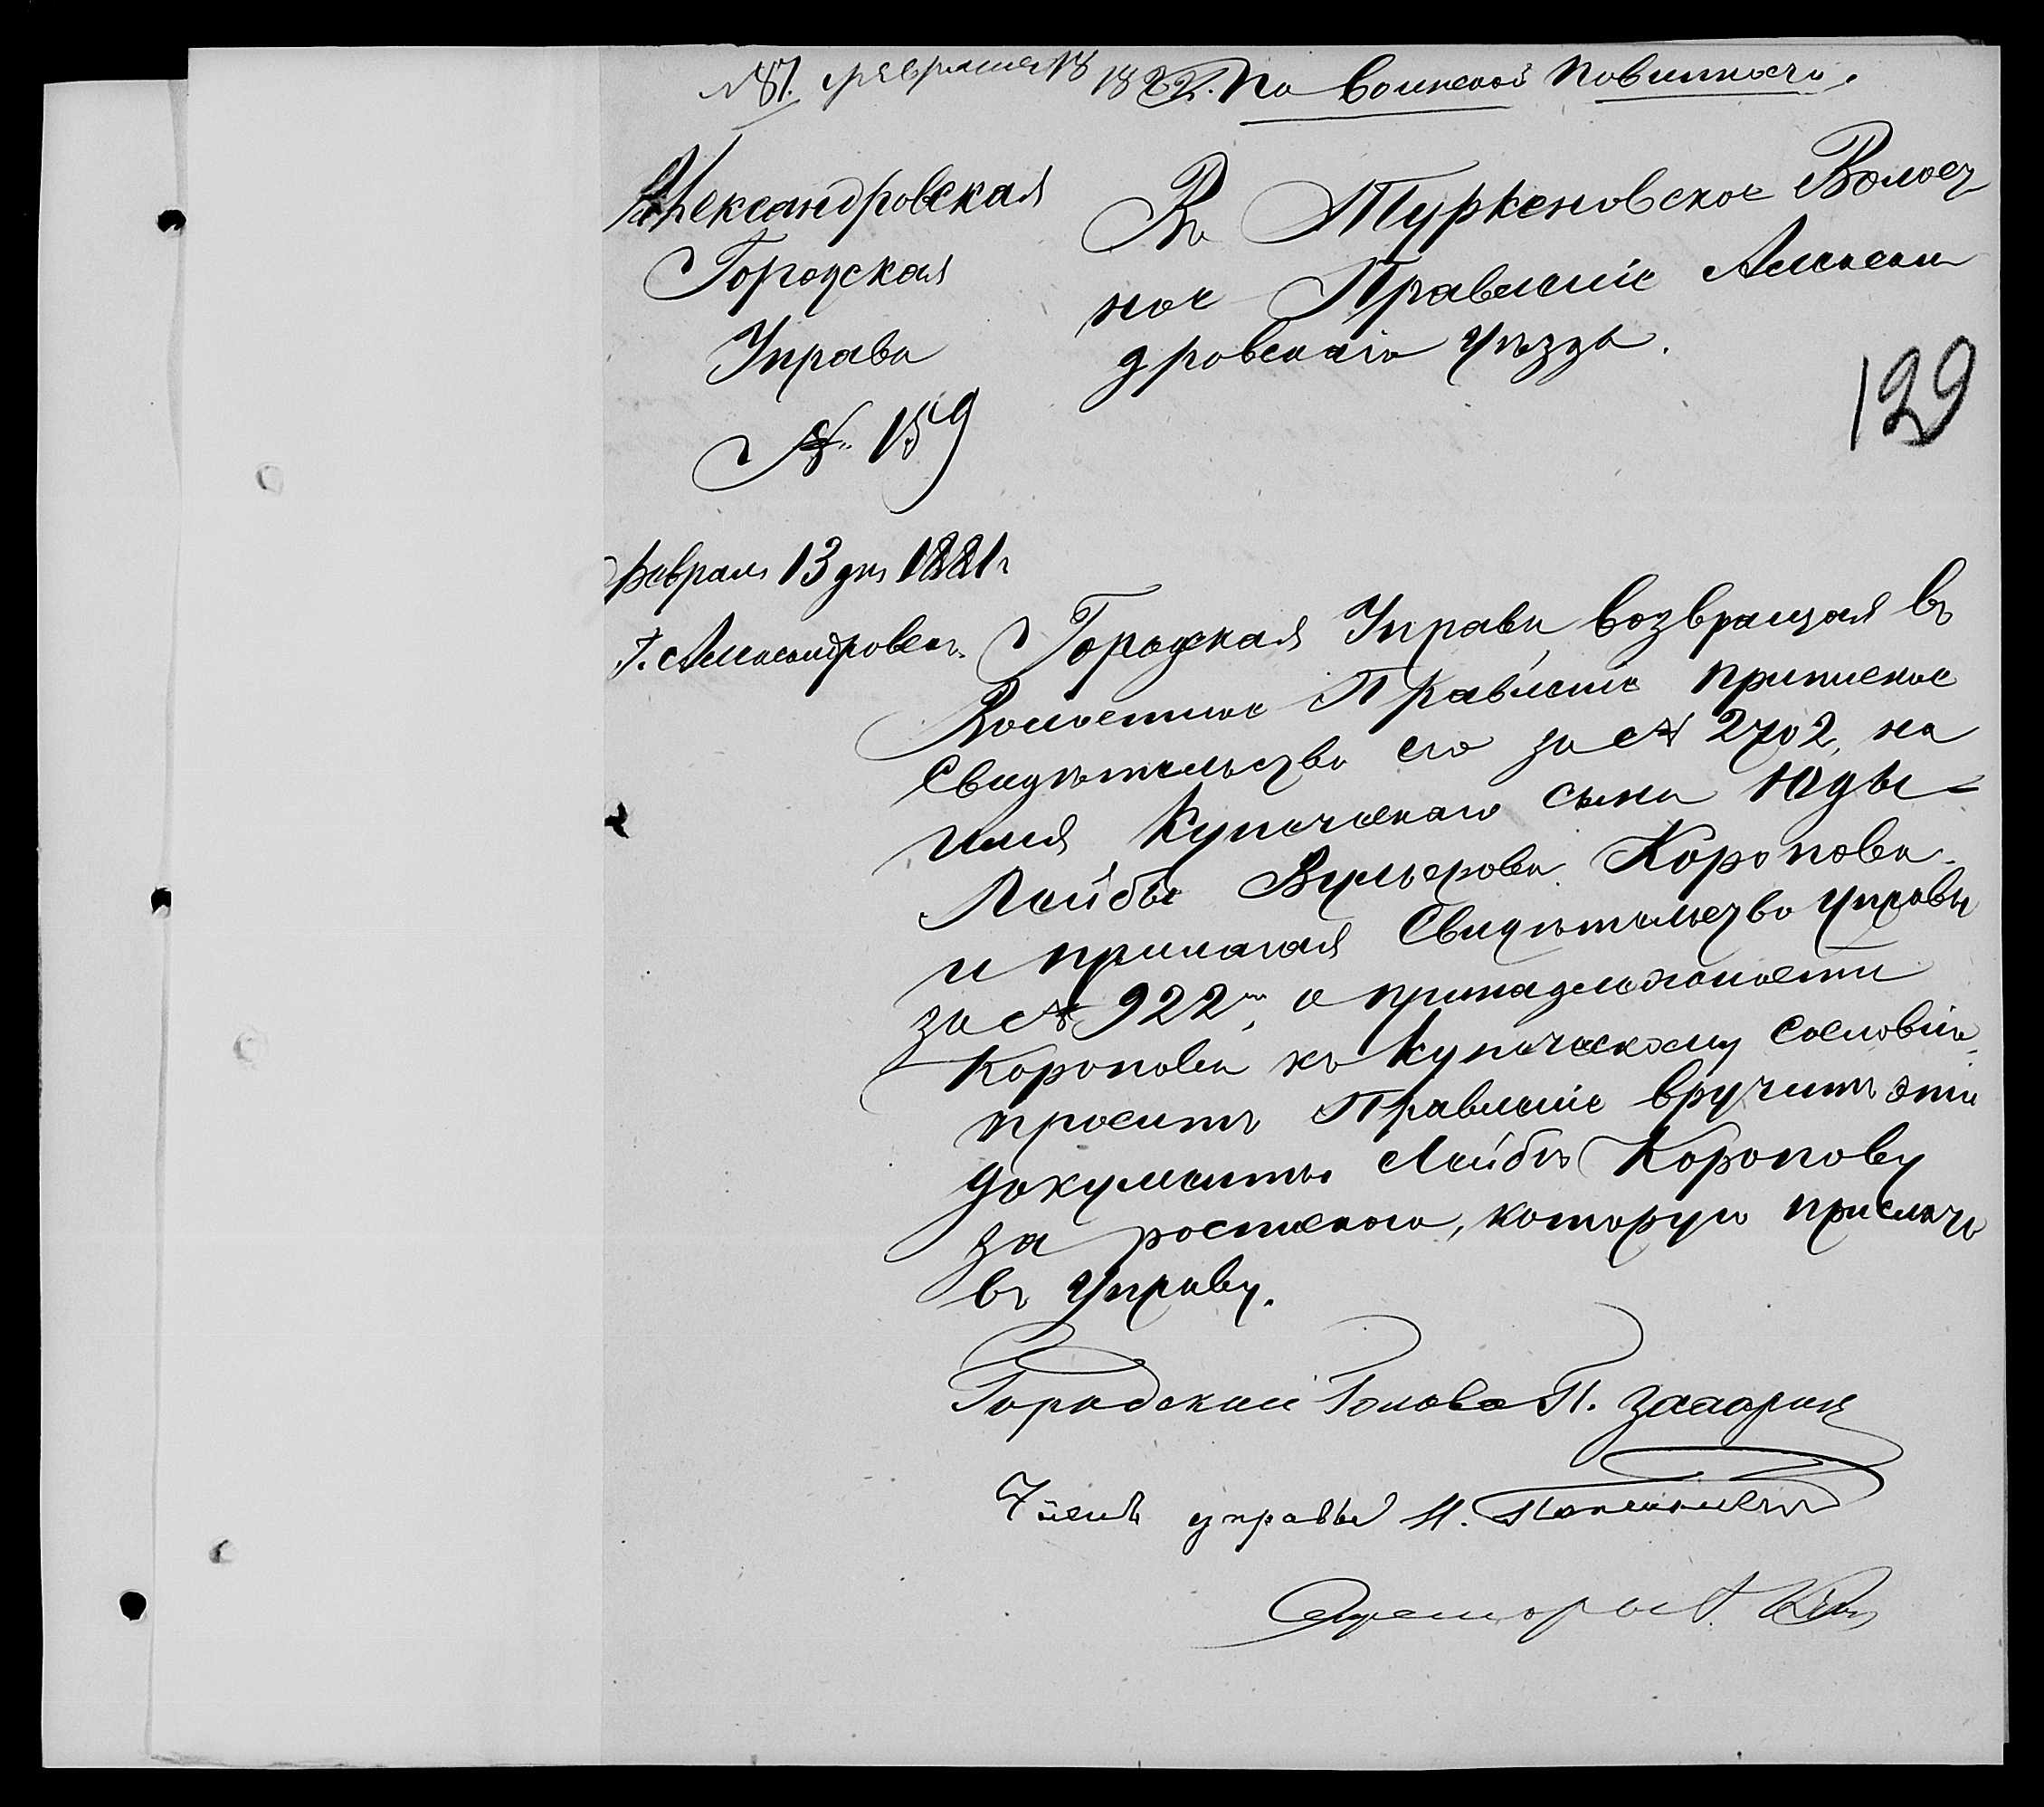 № 87. февраля 18 1882. По воинской повинности.
Александровская
Городская
Управа
№ 159
Февраля 13 дня 1881 г
г. Александровск.
Въ Туркеновское Волост
ное Правленіе Алексан
дровскаго уѣзда.
129
Городская Управа, возвращая въ
Волостное Правленіе приписное
Свидѣтельство его за № 2702, на
имя Купеческаго сына Юды-
Лейбы Вульфова Коропова
и прилагая Свидѣтельство Управы
за № 922, о принадлежности
Коропова къ Купеческому сословію,
проситъ Правленіе вручить эти
документы Лейбѣ Коропову
за роспискою, которую прислать
въ Управу.
Городской Голова П.
Членъ управы И.
Секретарь